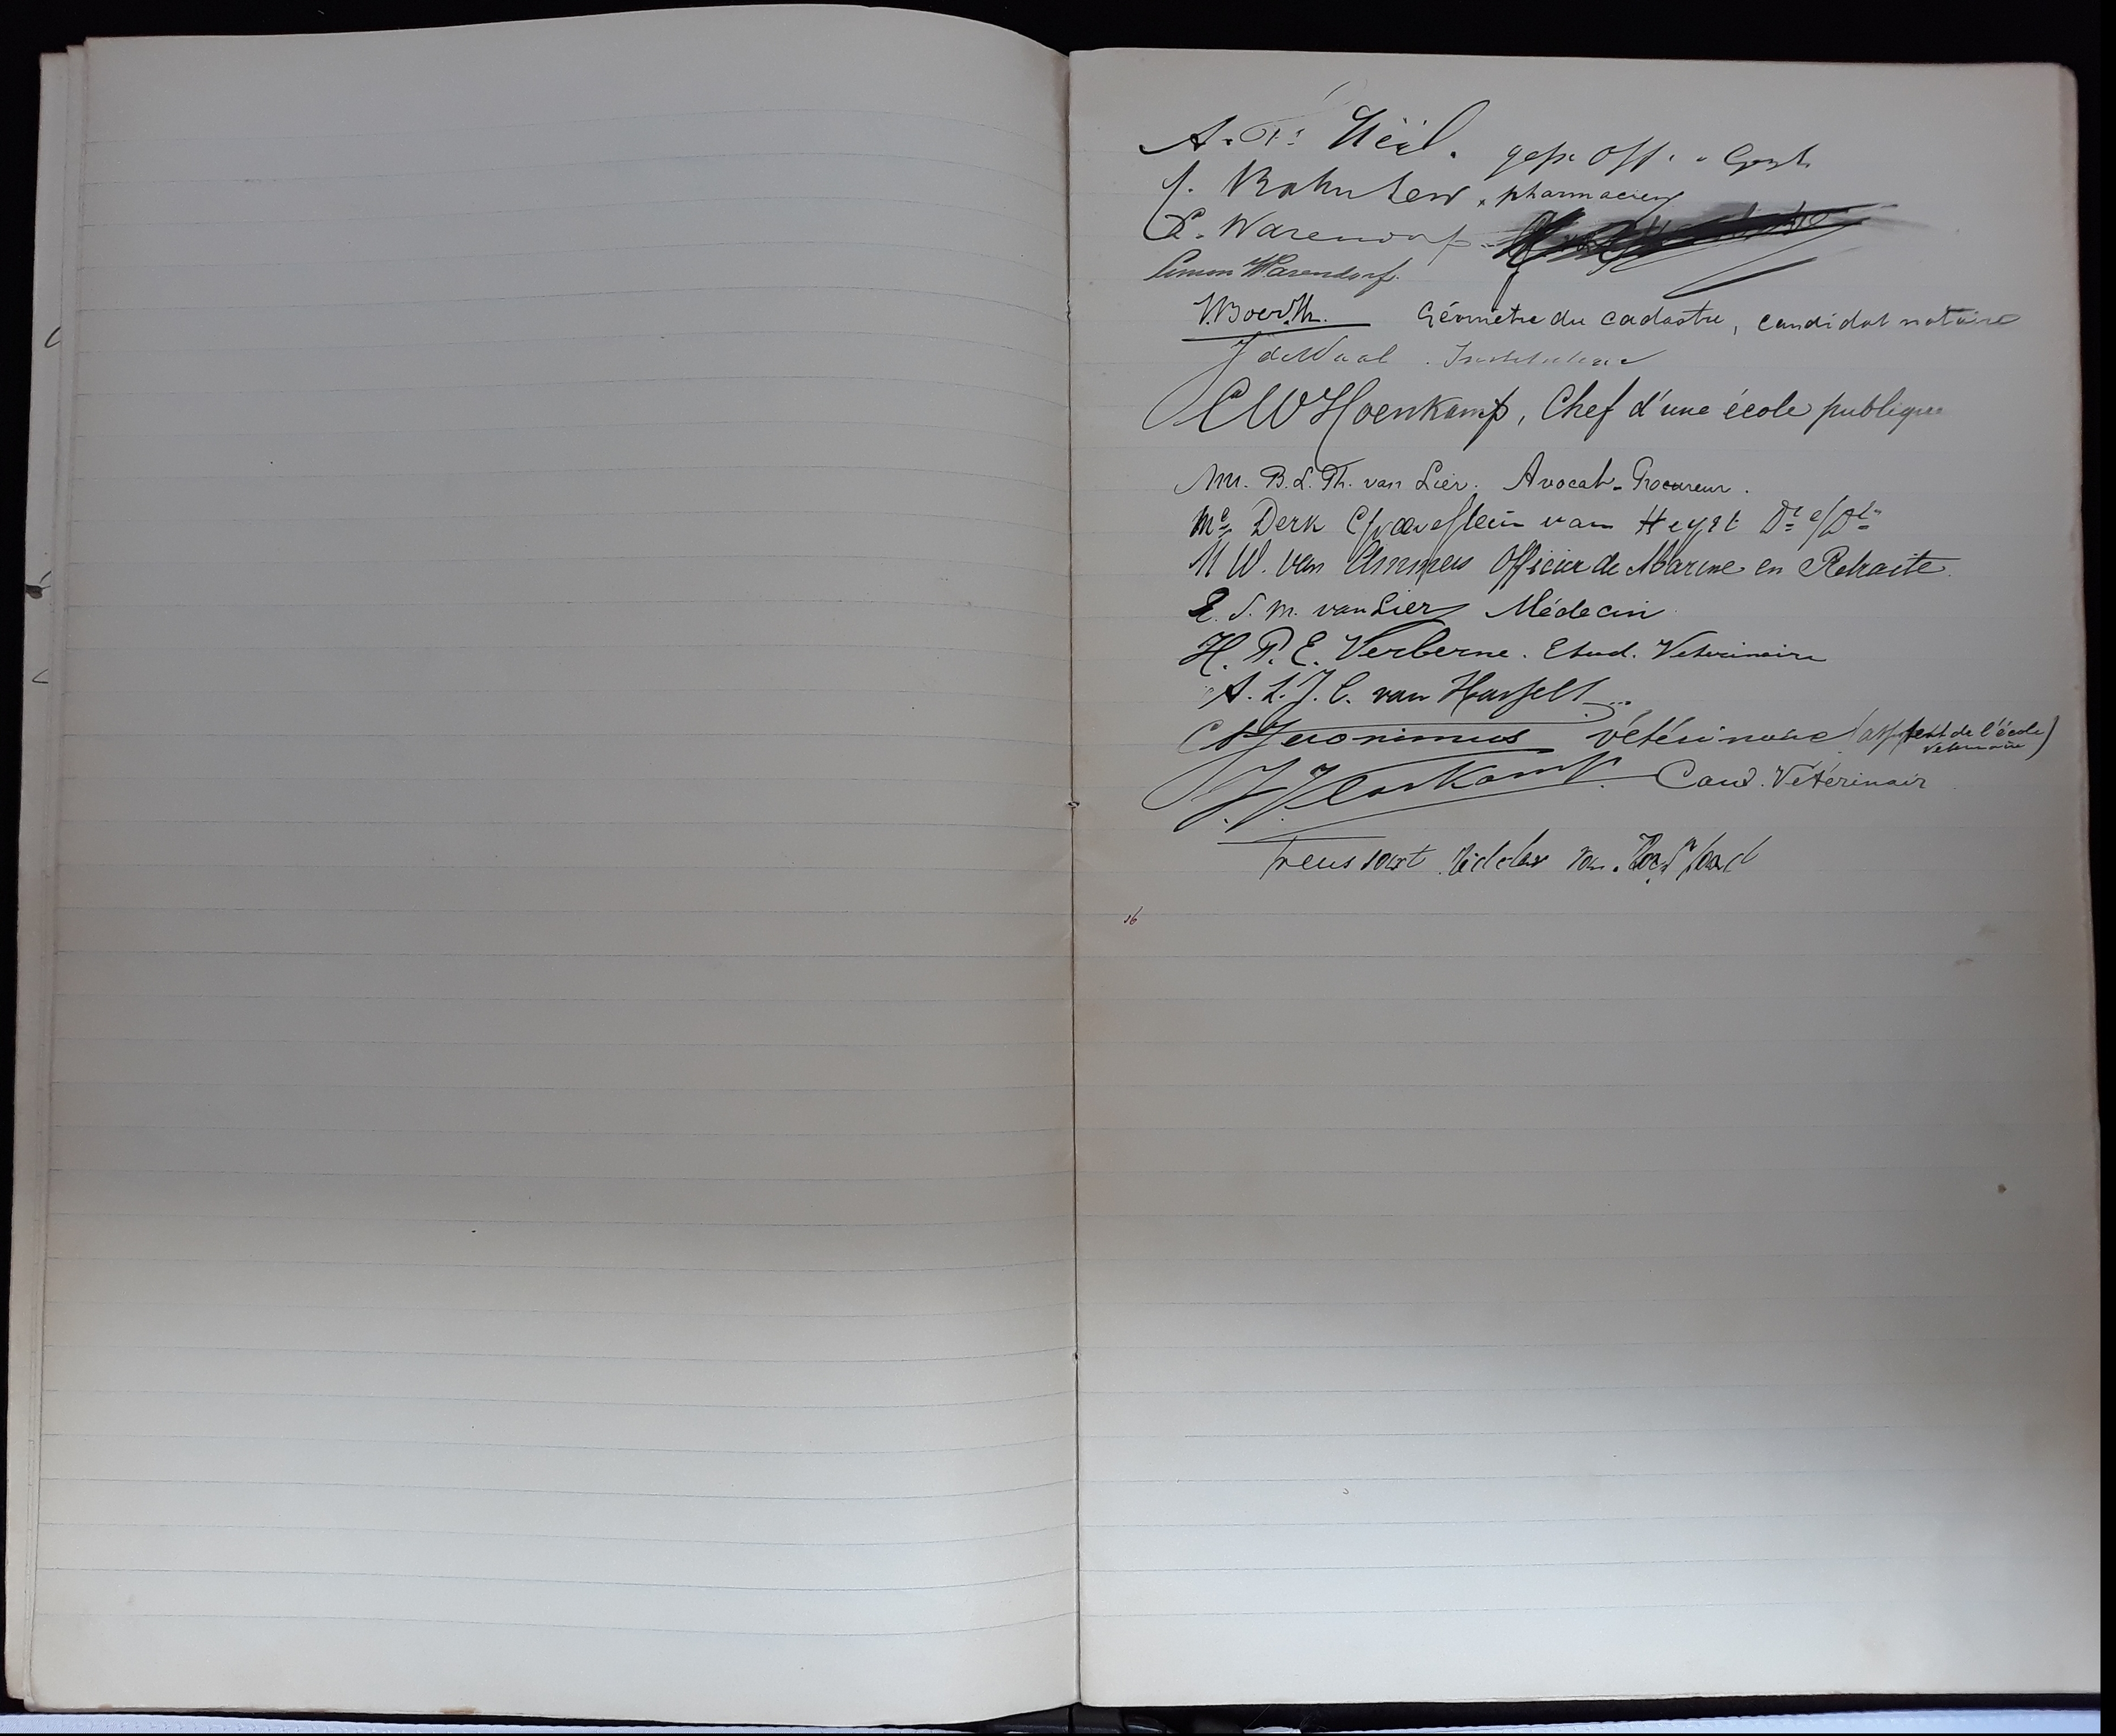 A. Neil. gep. Off. Gest.
J. pharmacien
E. Warendorf
Simon Warendorf.
Géomètre du cadastre, candidat notaire
J de Waal. Instituteur
C W Hoenkamp, Chef d'une école publique
Mr. B. L. Th. van Lier. Avocat-Procureur.
Mr. Derk van Heyst
M W. van Ommers Officier de Marine en Retraite.
E. S. M. van Lier Médecin
H. P. E. Verberne. Etud. Veterinaire
A. L. J. C. van Hasselt
Jeronimus vétérinaire (assistent de l'école
veterinaire)
Cand. Vétérinair
Ridder van
16